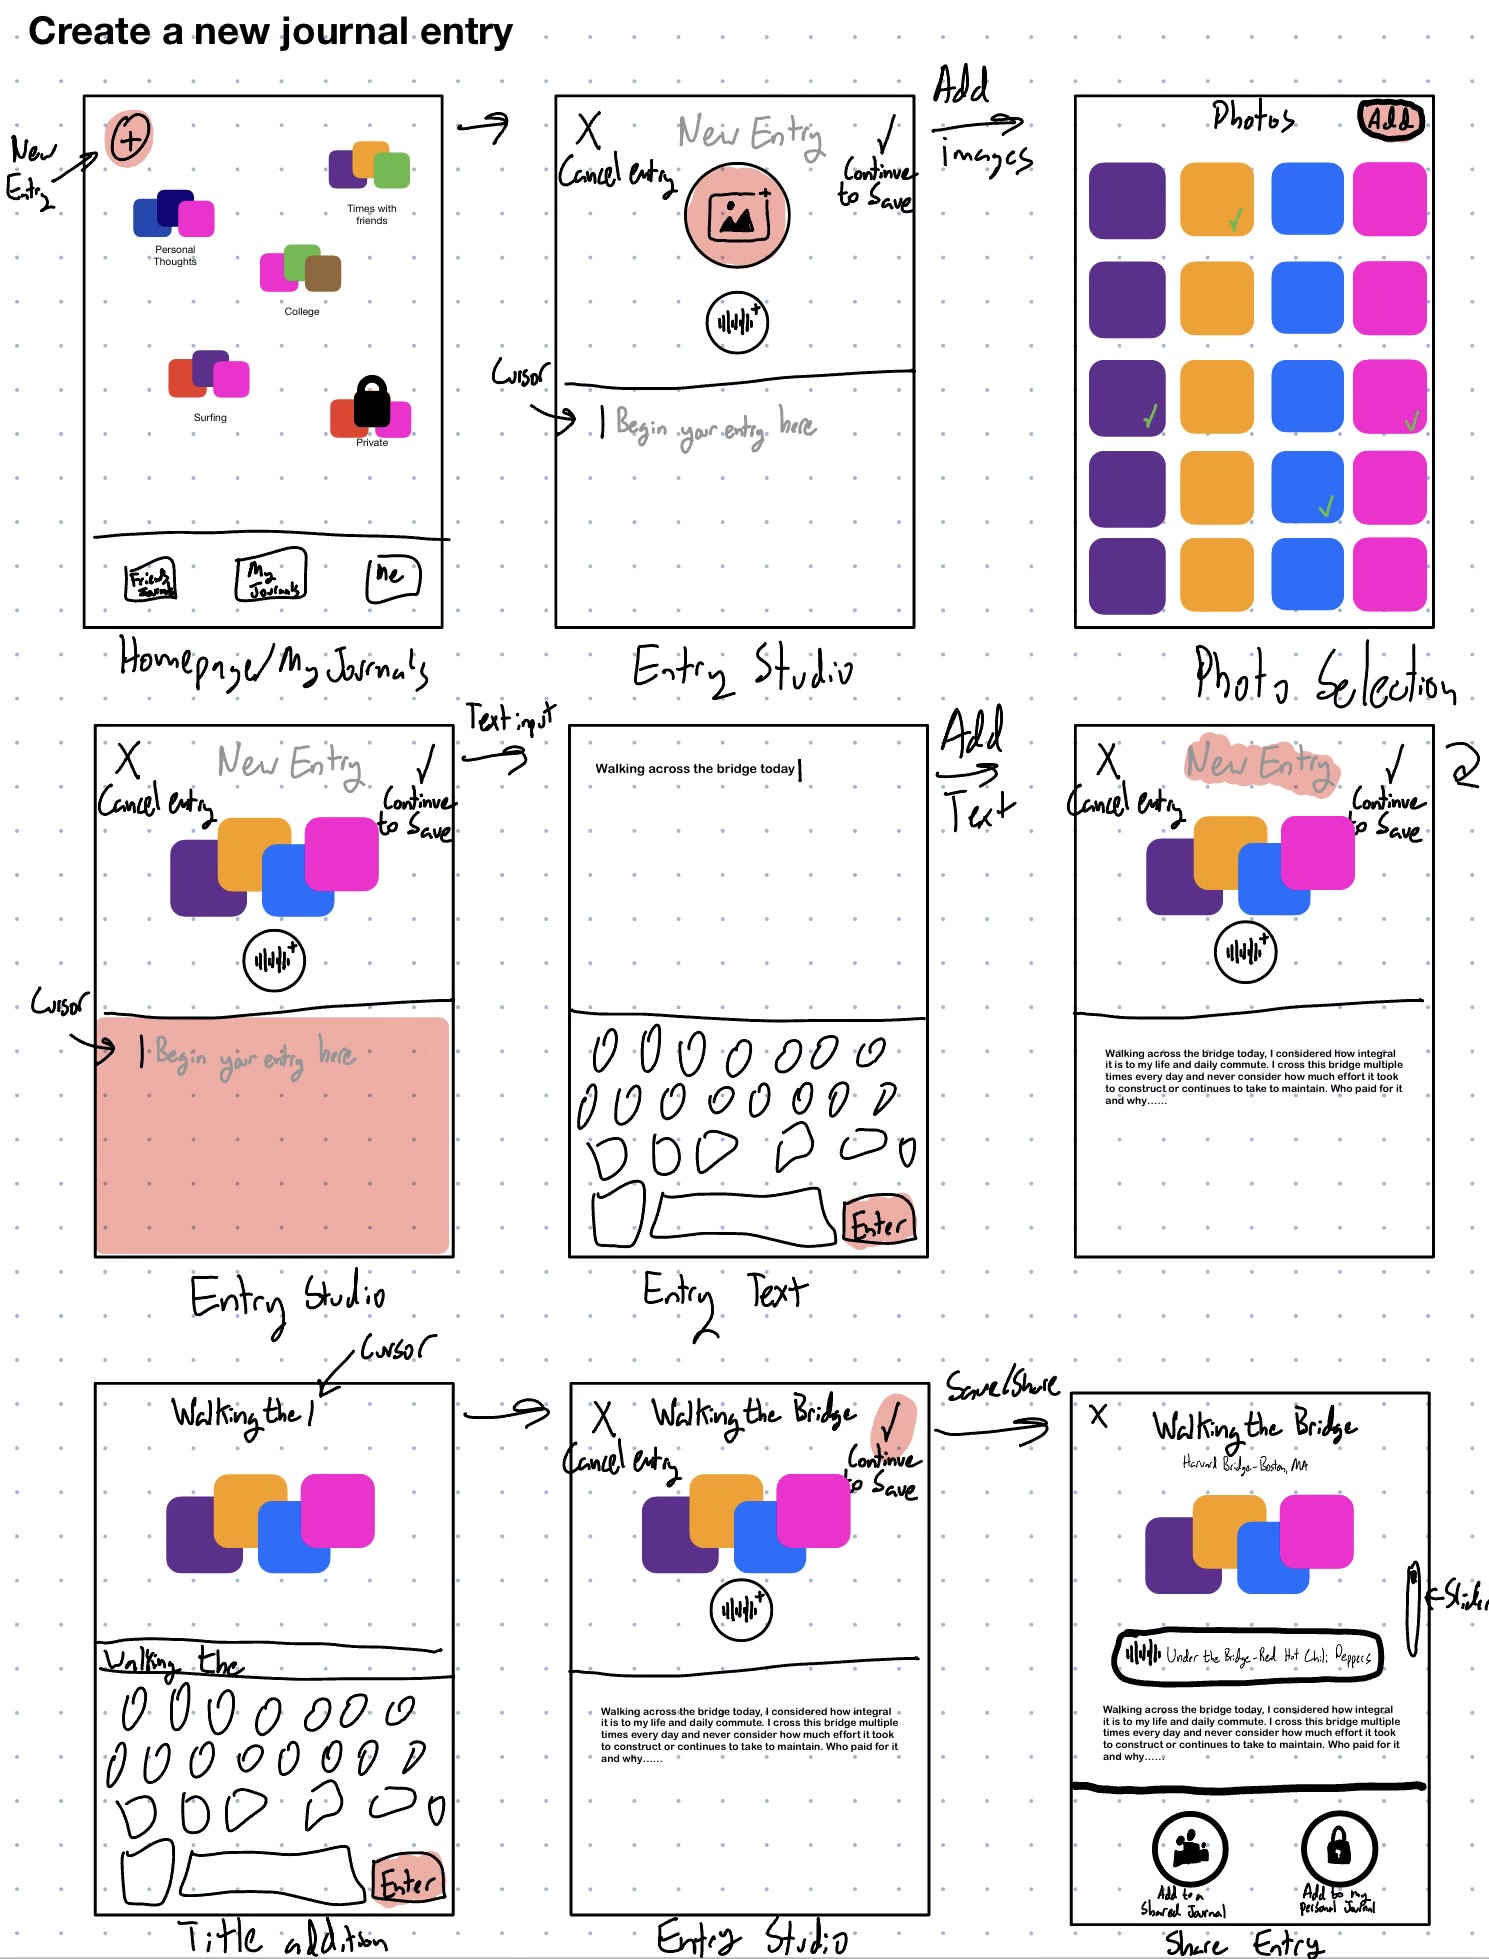 Create a new journal entry
New
Entry
+
Personal
Thoughts
Times with
friends
College
Surfing
Private
Friends
My
Journals
Me
Homepage/My Journals
X
New Entry
Cancel entry
Continue
to Save
Cursor
Begin your entry here
Entry Studio
Add
images
Photos
Add
Photo Selection
X
New Entry
Cancel entry
Continue
to Save
Cursor
Begin your entry here
Entry Studio
Text input
Walking across the bridge today
Enter
Entry Text
Add
Text
X
New Entry
Cancel entry
Continue
to Save
Walking across the bridge today, I considered how integral
it is to my life and daily commute. I cross this bridge multiple
times every day and never consider how much effort it took
to construct or continues to take to maintain. Who paid for it
and why......
Cursor
Walking the
Walking the
Enter
Title addition
X
Walking the Bridge
Cancel entry
Continue
to Save
Walking across the bridge today, I considered how integral
it is to my life and daily commute. I cross this bridge multiple
times every day and never consider how much effort it took
to construct or continues to take to maintain. Who paid for it
and why......
Entry Studio
Save/Share
X
Walking the Bridge
Harvard Bridge-Boston, MA
Slider
Under the Bridge-Red Hot Chili Peppers
Walking across the bridge today, I considered how integral
it is to my life and daily commute. I cross this bridge multiple
times every day and never consider how much effort it took
to construct or continues to take to maintain. Who paid for it
and why......
Add to a
Shared Journal
Add to my
personal Journal
Share Entry